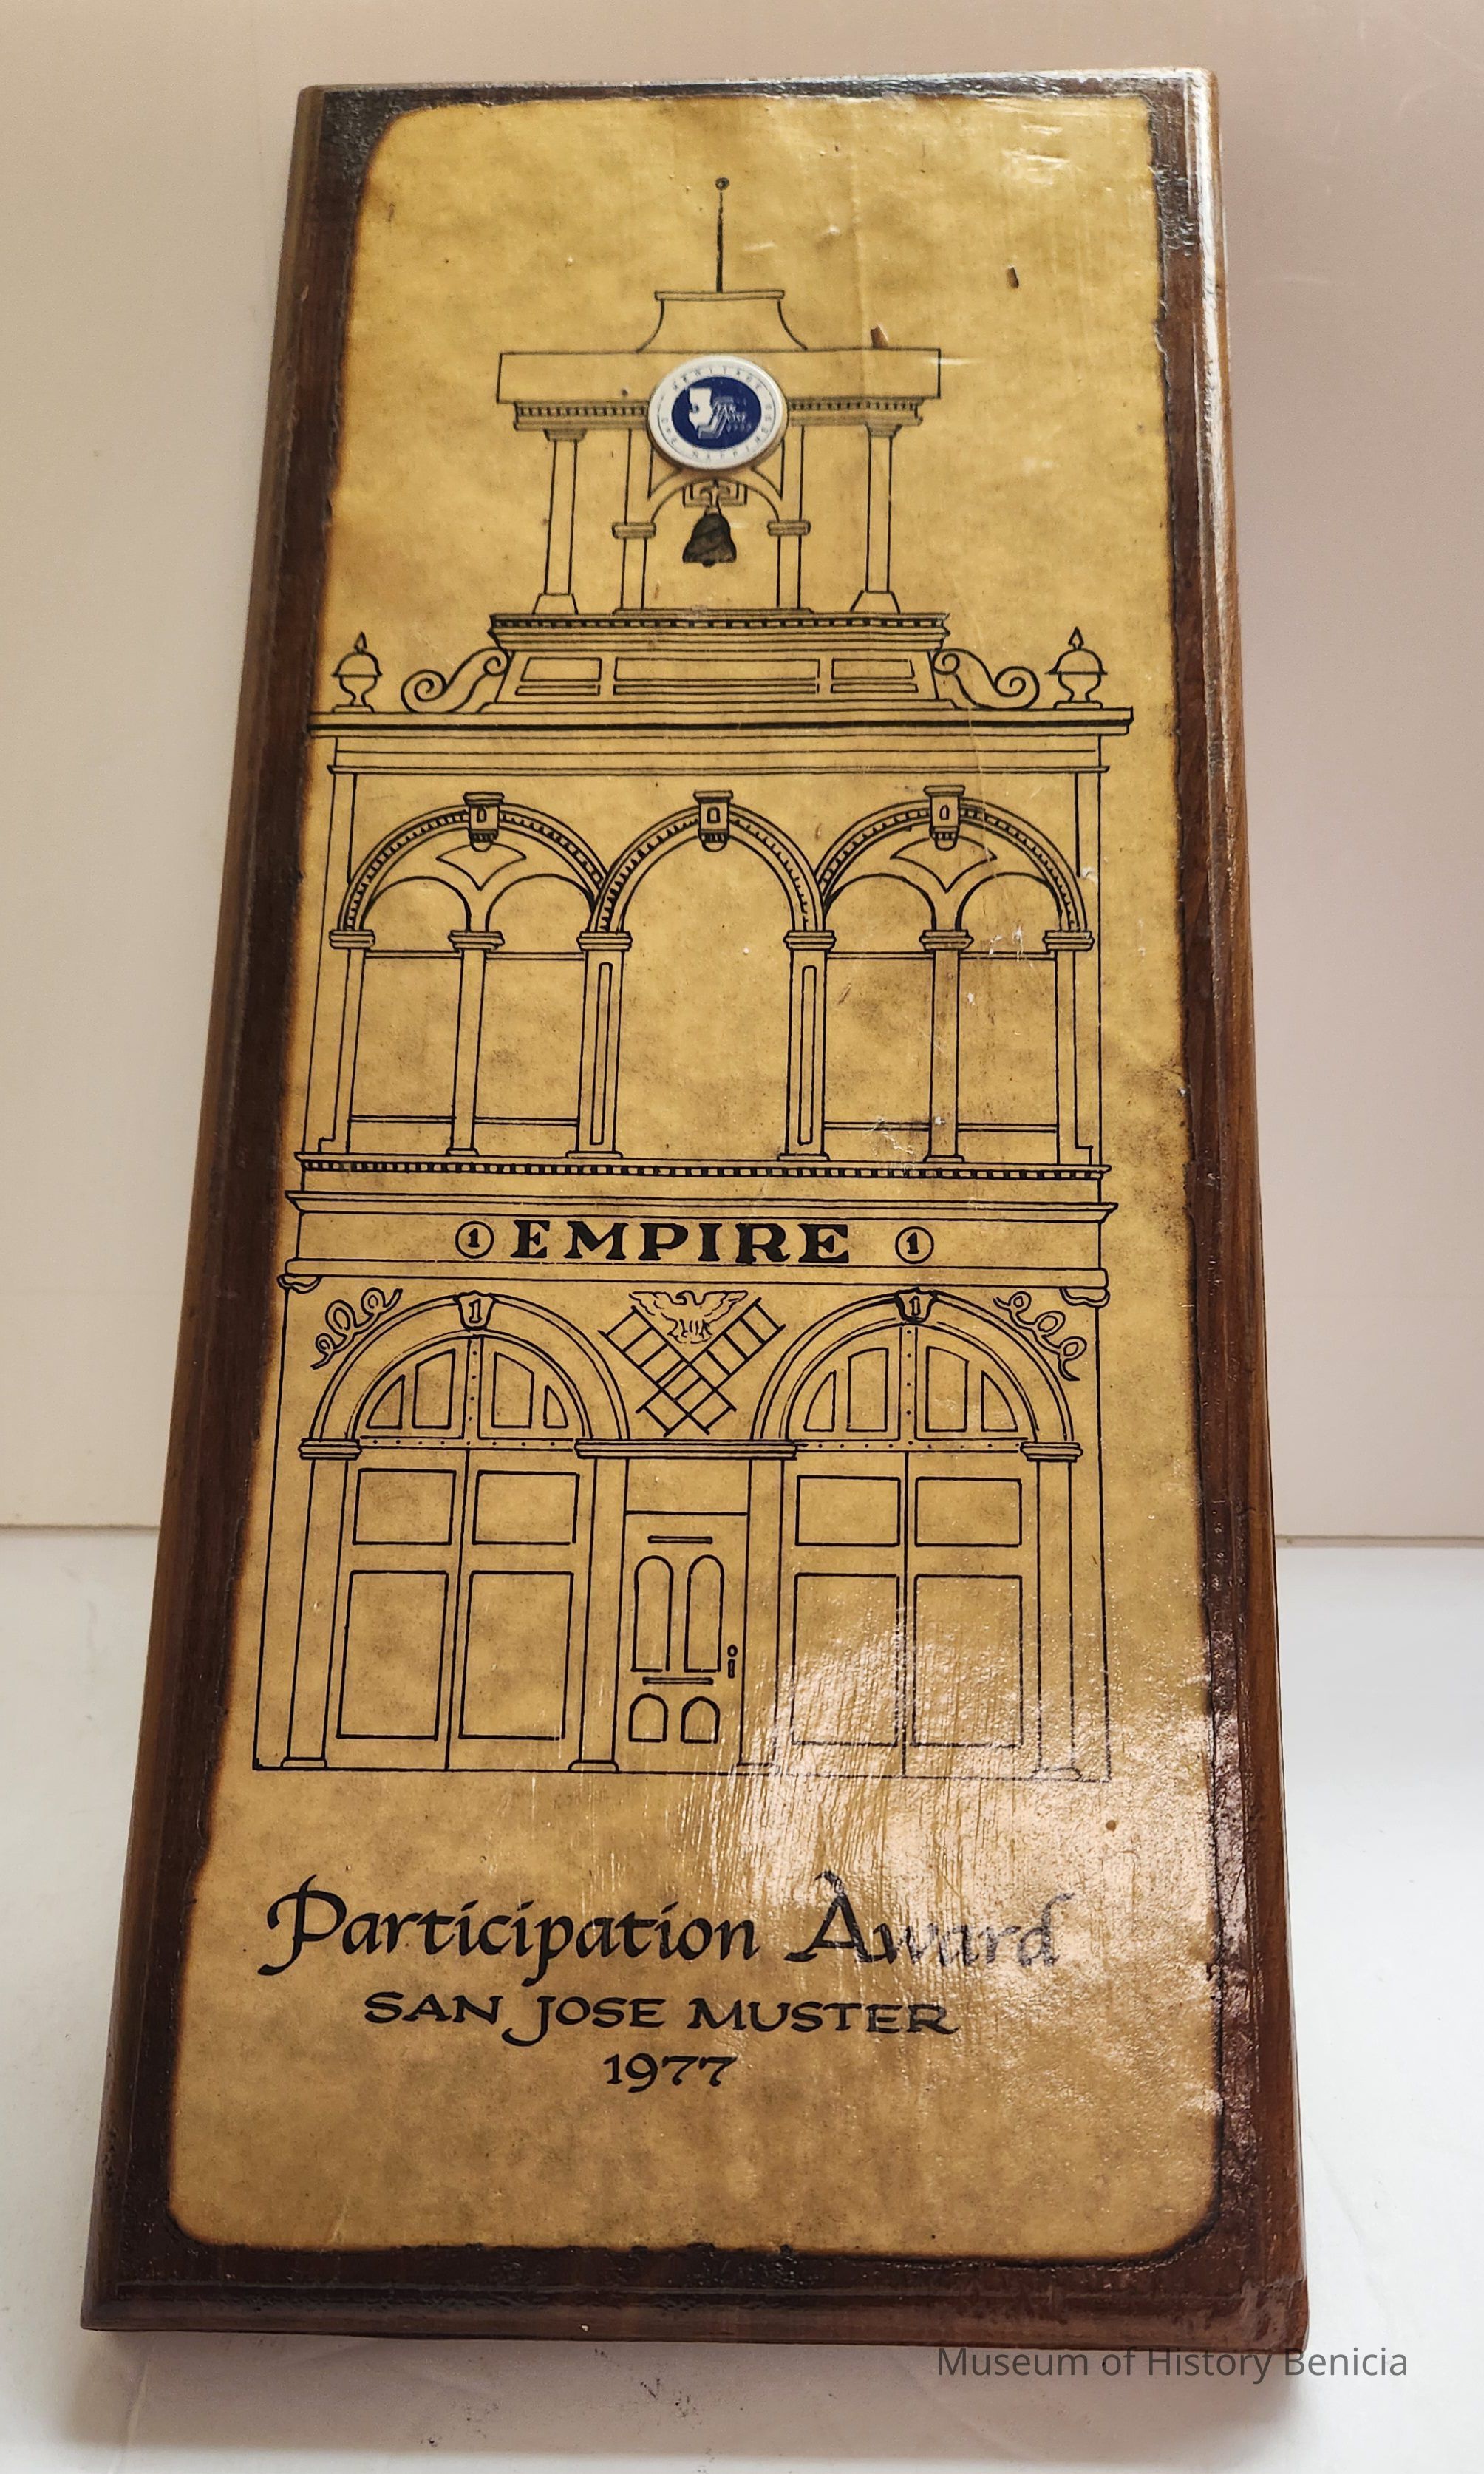 HERITAGE
SAN
JOSE
1 EMPIRE 1
1
1
Participation Award
SAN JOSE MUSTER
1977
Museum of History Benicia